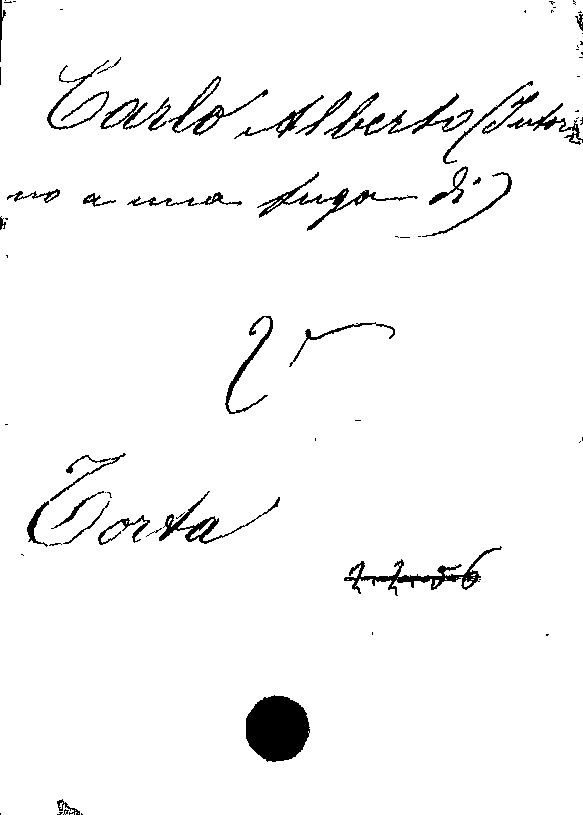 Carlo Alberto (Intor
no a una fuga di)
Vr
Torta
2.2.56